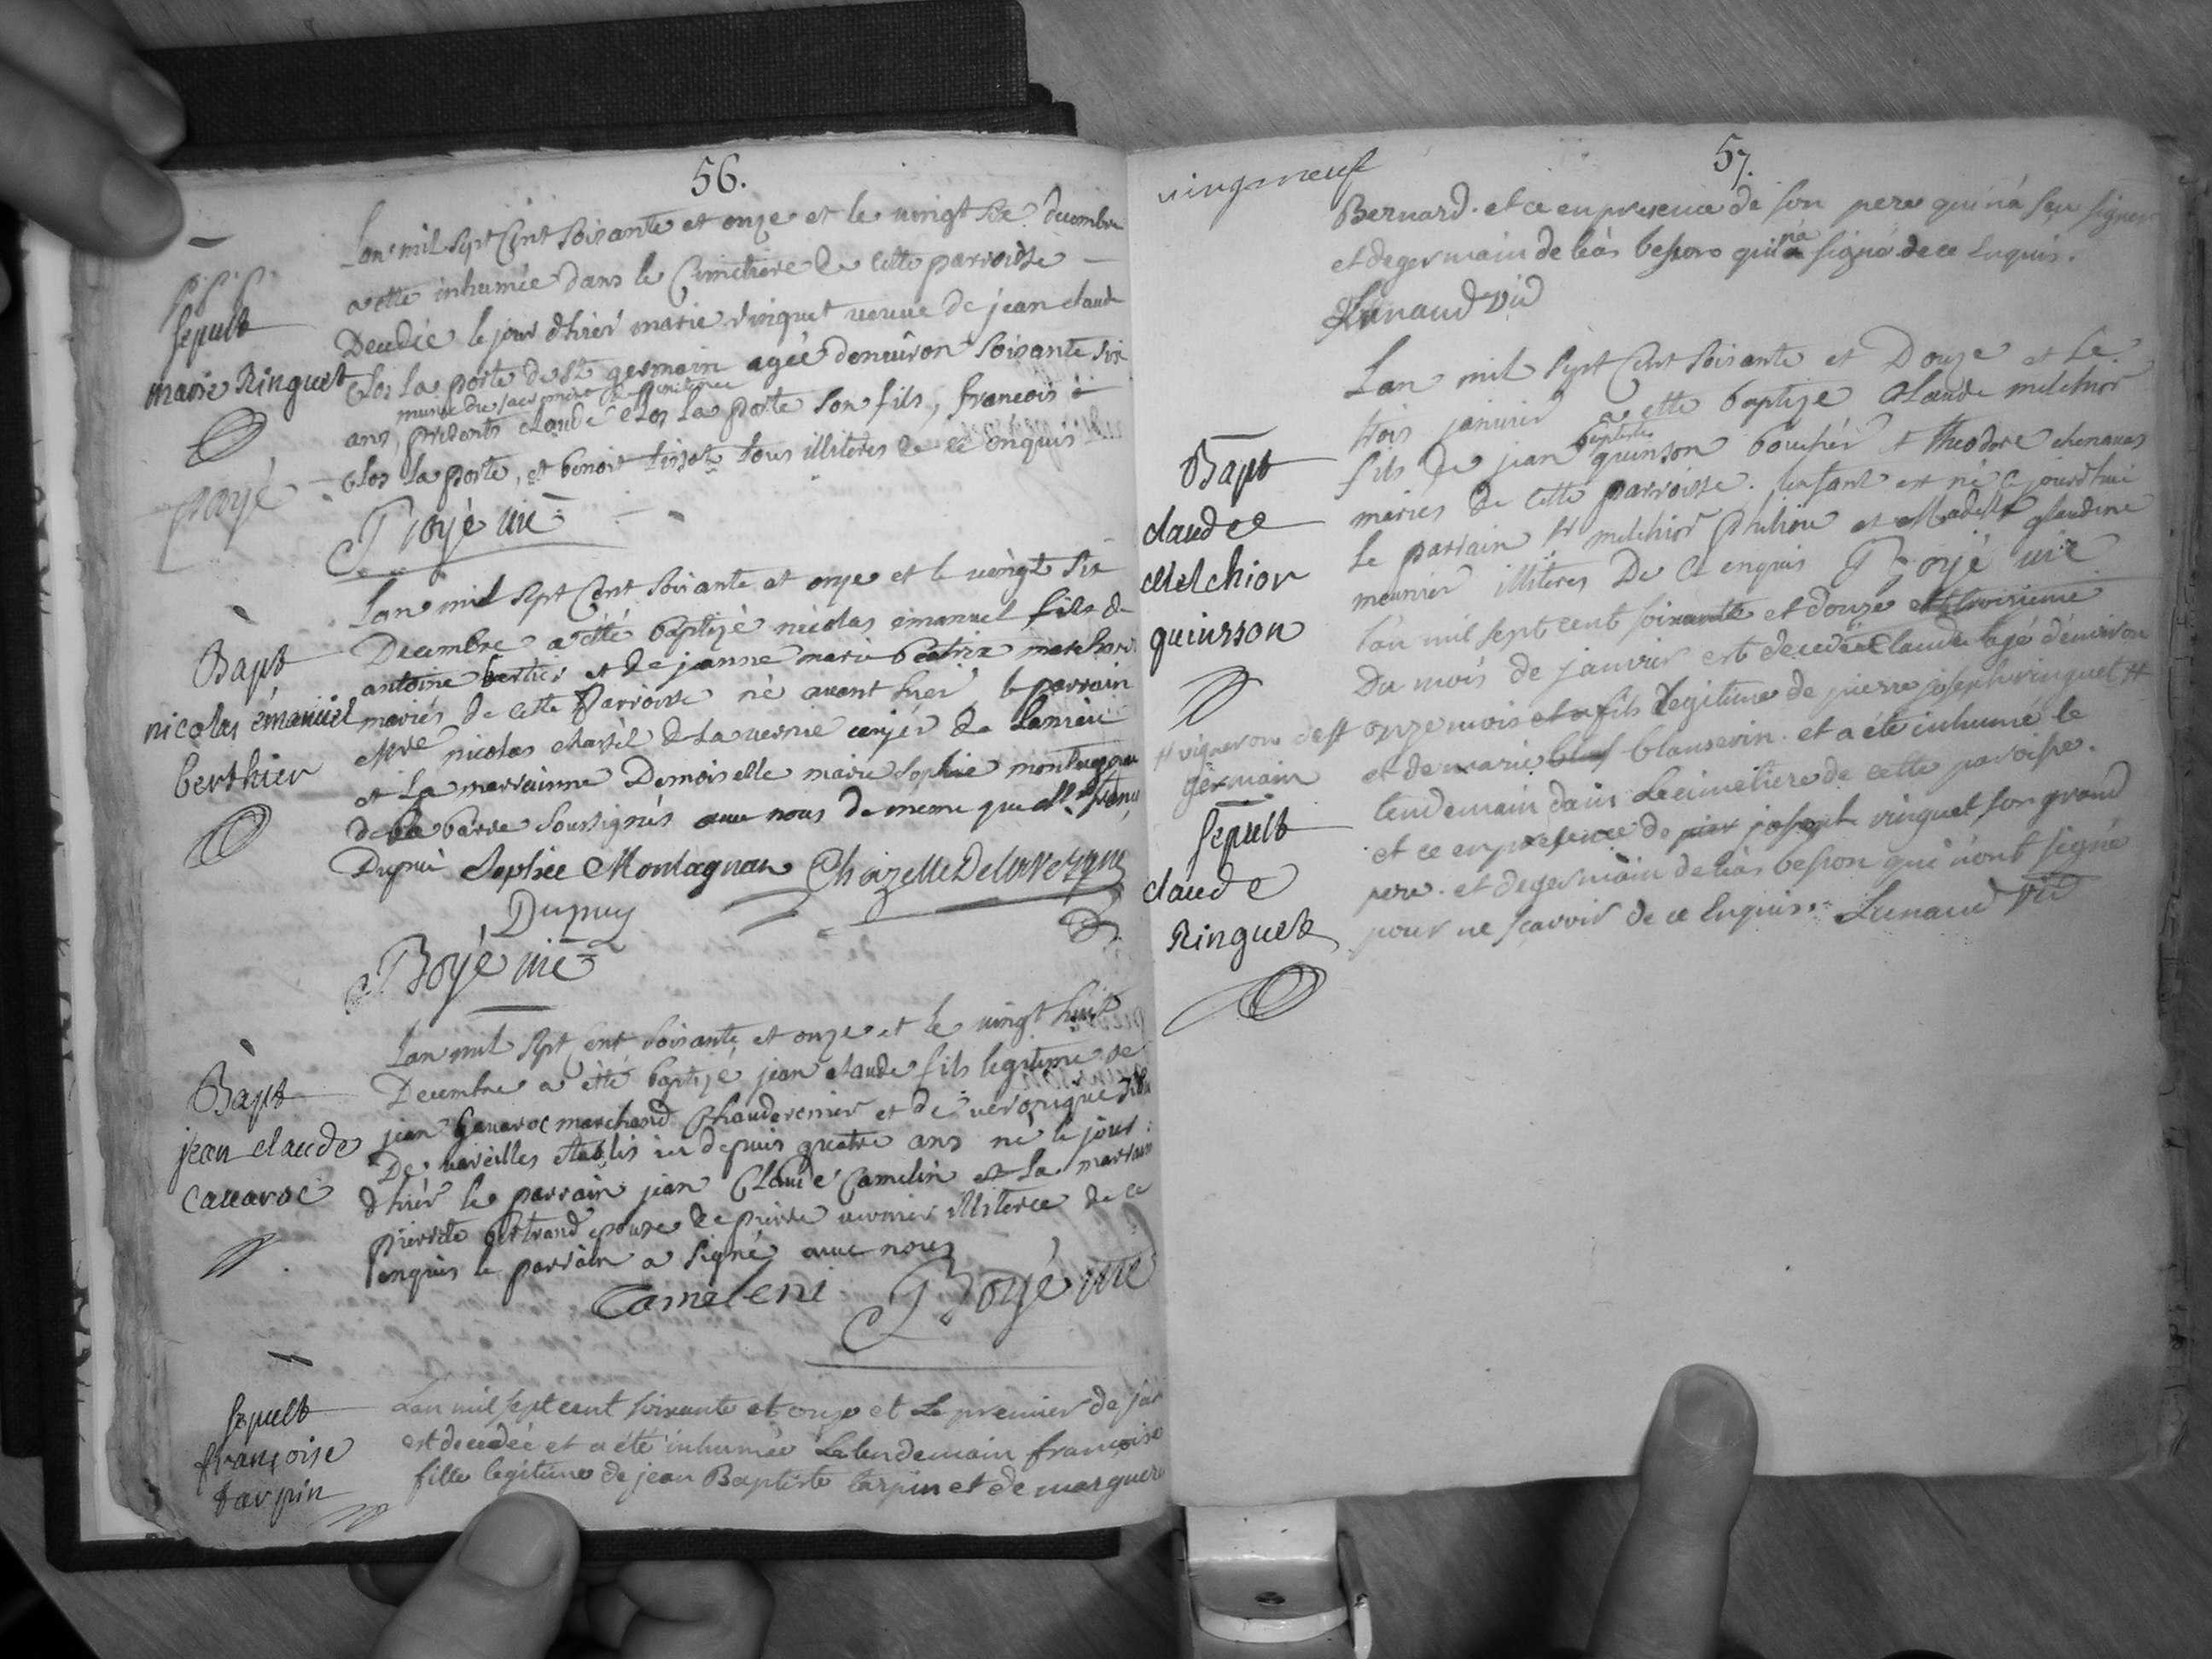 56.
Lan mil sept Cent Soixante et onze et le vingt six decembre
a ette inhumée dans le Cimetiere de cette parroisse
Decedée le jour dhier marie ringuet veuve de jean claude
Clos la porte de st germain agée denviron Soixante six
munie du sacrement de penitence
ans, presents claude clos la porte son fils, francois
Clos la porte, et benoit tissot tous illiteres de ce enquis
Royé vic
Sepult
marie Ringuet
Lan mil sept Cent Soixante et onze et le vingt six
Decembre a etté baptizé nicolas emanuel fils de
antoine bertier et de jeanne marie beatrix
mariés de cette Parroisse né avant hier, le parrain
Mre nicolas de Lavernie
et La marrainne Demoiselle marie Sophie
de la barre Soussignés avec nous de meme que
Dupui Sophie Montagnan
Dupuy
Royé vic
Bapt
nicolas emanuel
berthier
Lan mil sept cent soixante et onze et le vingt huit
Decembre a etté baptizé jean claude fils legitime de
jean Cavaroc marchand Chauderonier et de veronique
De etablis ici depuis quatre ans né le jour
dhier le parrain jean Claude Camelin et la marraine
pierrete bertrand epouse de pierre vernier illiteree de ce
enquis le parrain a signé avec nous
Camelin Royé vic
Bapt
jean claude
Cavaroc
Lan mil sept cent soixante et onze et Le premier de
est decedée et a été inhumée Le lendemain francoise
fille legitime de jean Baptiste tarpin et de
Sepult
françoise
tarpin
57.
vingt neuf
Bernard. et ce en presence de son pere qui n'a seu signer
et de germain de léas besson qui n'a signé de ce Enquis.
Lunaud vic
Lan mil sept Cent Soixante et Douze et Le
trois janvier a etté baptizé Claude melchior
baptiste
fils de jean quinson boucher et theodore chenavas
mariés de cette parroisse. lenfant est né ajourdhui
Le parrain Sr melchior et Madelle glaudine
meunier illiteres De Ce enquis Royé vic
Bapt
claude
Melchior
quinsson
L'an mil sept cent soixante et douze et le troisieme
Du mois de janvier est decedé claude agé d'environ
onze mois fils legitime de pierre joseph ringuet #
# vigneron de st
germain
et de marie blanserin. et a été inhumé le
lendemain dans Le cimetiere de cette paroisse.
et ce en presence de joseph ringuet son grand
pere. et de germain de léas besson qui n'ont signé
pour ne sçavoir de ce Enquis. Lunaud vic
Sepult
claude
Ringuet